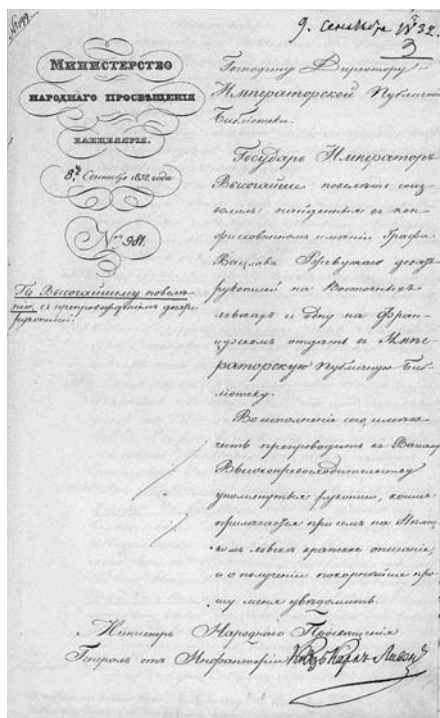 9. Сентября 1832.
3
МИНИСТЕРСТВО
НАРОДНАГО ПРОСВѢЩЕНІЯ
КАНЦЕЛЯРІЯ.
8го Сентября 1832 года
№ 981.
По Высочайшему повелѣ-
нію, съ препровожденіемъ
рукописей.
Господину Директору
Императорской Публичной
Библіотеки.
Государь Императоръ
Высочайше повелѣть соиз-
волилъ: найденныя въ кон-
фискованномъ имѣніи Графа
Вацлава Ржевускаго
рукописей на Восточныхъ
языкахъ и одну на Фран-
цузскомъ отдать въ Импе-
раторскую Публичную Биб-
ліотеку.
Во исполненіе сего имѣю
честь препроводить къ Вашему
Высокопревосходительству
упомянутыя рукописи, коимъ
прилагается при семъ на
языкѣ краткое описаніе,
и о полученіи покорнѣйше про-
шу меня увѣдомить.
Министръ Народнаго Просвѣщенія
Генералъ отъ Инфантеріи Князь Карлъ Ливенъ